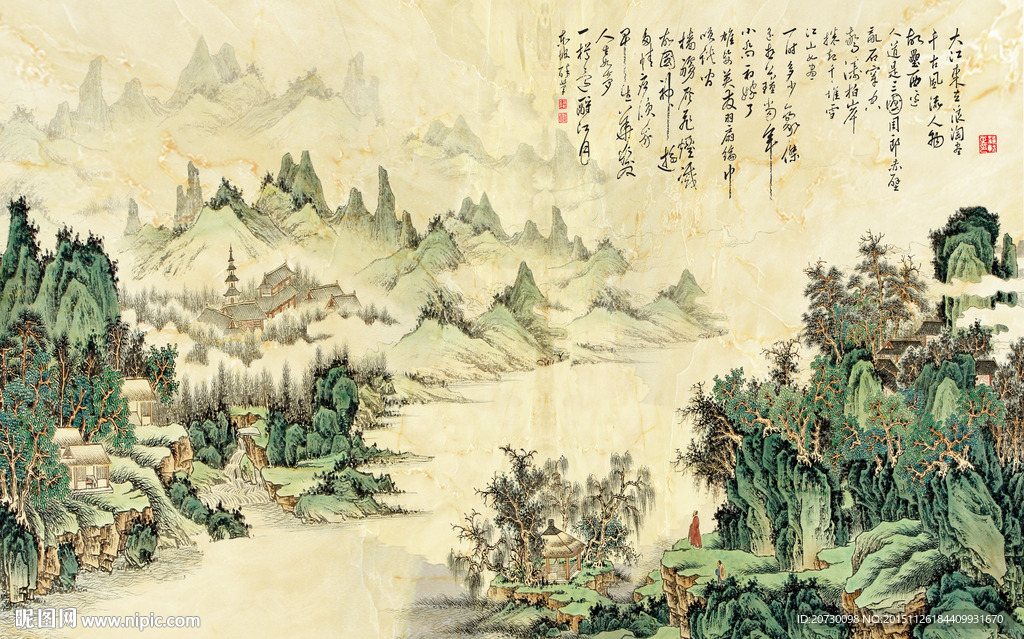 大江東去浪淘尽
千古風流人物
故壘西边
人道是三國周郎赤壁
亂石穿空
驚濤拍岸
捲起千堆雪
江山如畫
一时多少豪傑
遥想公瑾當年
小喬初嫁了
雄姿英发羽扇綸巾
談笑间
檣櫓灰飛煙滅
故國神遊
多情應笑我
早生華髮
人生如夢
一樽還酹江月
東坡
昵图网 www.nipic.com
ID:20730098 NO:20151126184409931670